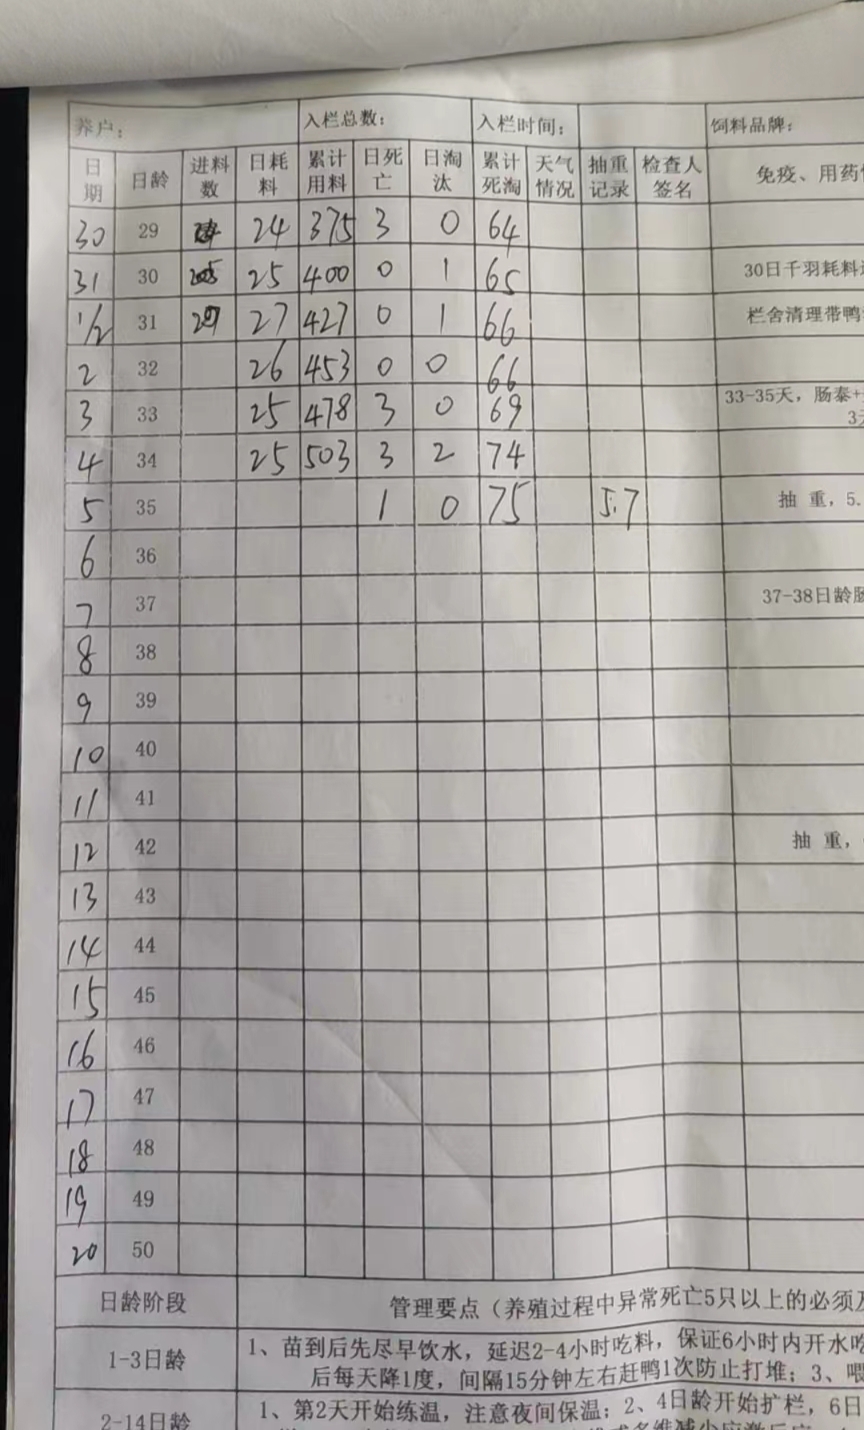 养户： 入栏总数： 入栏时间： 饲料品牌：
日期 日龄 进料数 日耗料 累计用料 日死亡 日淘汰 累计死淘 天气情况 抽重记录 检查人签名 免疫、用药
30 29 24 375 3 0 64
31 30 25 400 0 1 65 30日千羽耗料
1/2 31 27 427 0 1 66 栏舍清理带鸭
2 32 26 453 0 0 66
3 33 25 478 3 0 69 33-35天，肠泰+
3
4 34 25 503 3 2 74
5 35 1 0 75 5.7 抽 重，5.
6 36
7 37 37-38日龄肠
8 38
9 39
10 40
11 41
12 42 抽 重，
13 43
14 44
15 45
16 46
17 47
18 48
19 49
20 50
日龄阶段 管理要点（养殖过程中异常死亡5只以上的必须及
1-3日龄 1、苗到后先尽早饮水，延迟2-4小时吃料，保证6小时内开水吃
后每天降1度，间隔15分钟左右赶鸭1次防止打堆；3、喂
2-14日龄 1、第2天开始练温，注意夜间保温；2、4日龄开始扩栏，6日